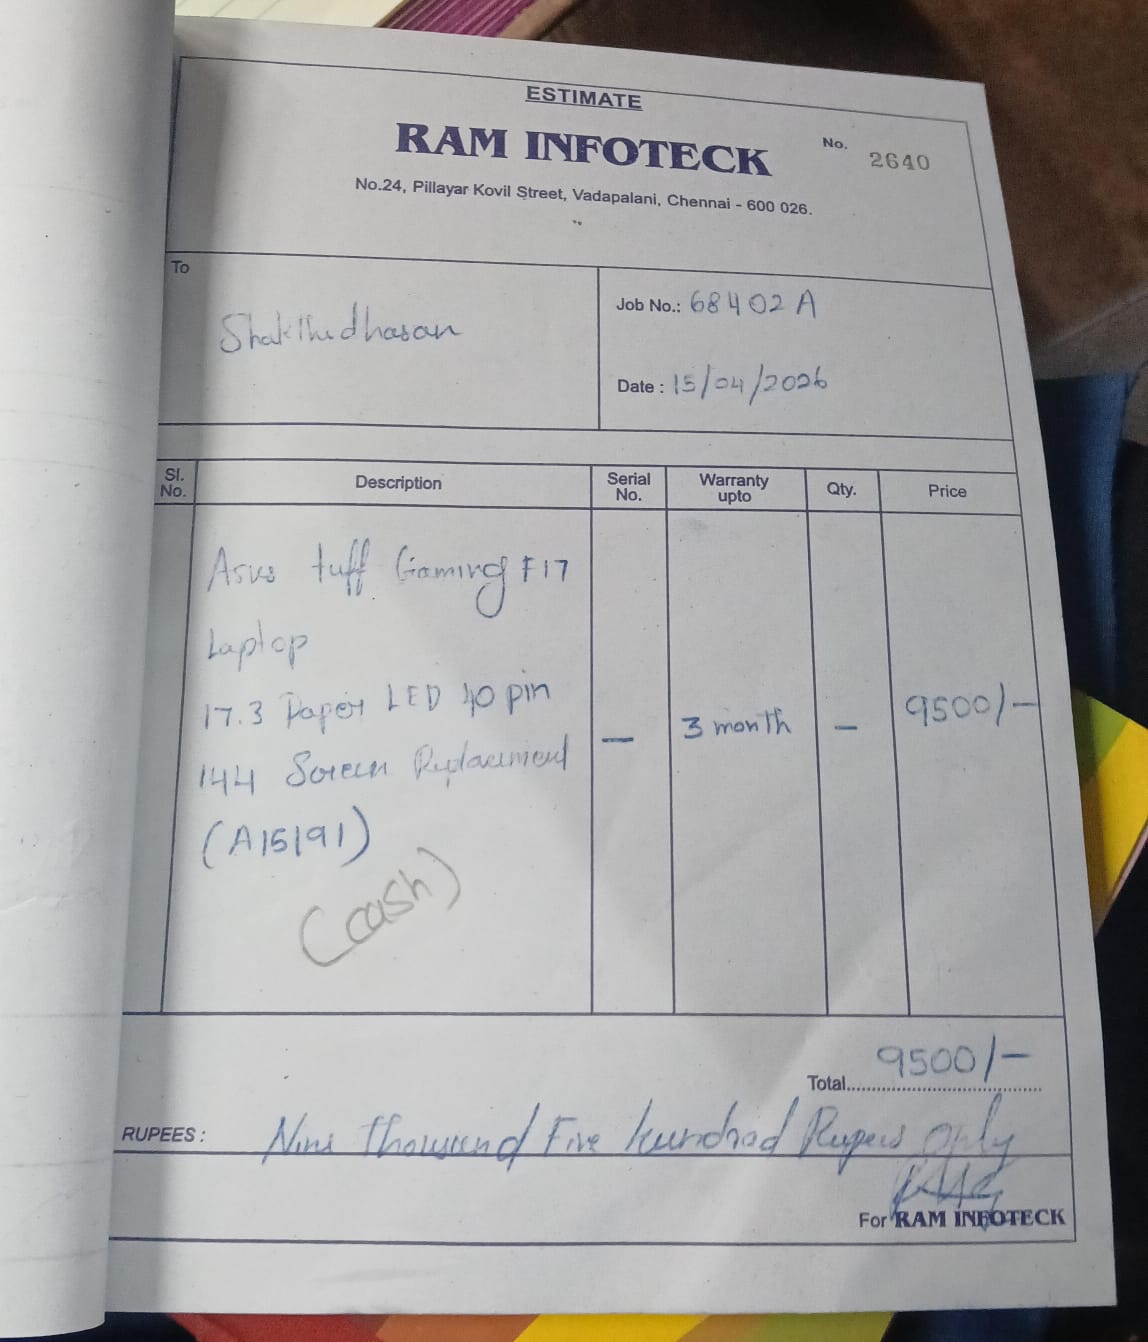 ESTIMATE
RAM INFOTECK
No. 2640
No.24, Pillayar Kovil Street, Vadapalani, Chennai - 600 026.
To
Shakthidhasan
Job No.: 68402A
Date : 15/04/2026
Sl. No. Description Serial No. Warranty upto Qty. Price
Asus tuff Gaming F17
Laptop
17.3 Paper LED 40 pin
144 Screen Replacement
— 3 month — 9500/-
(A15191)
(cash)
Total 9500/-
RUPEES : Nine Thousand Five hundred Rupees only
For RAM INFOTECK